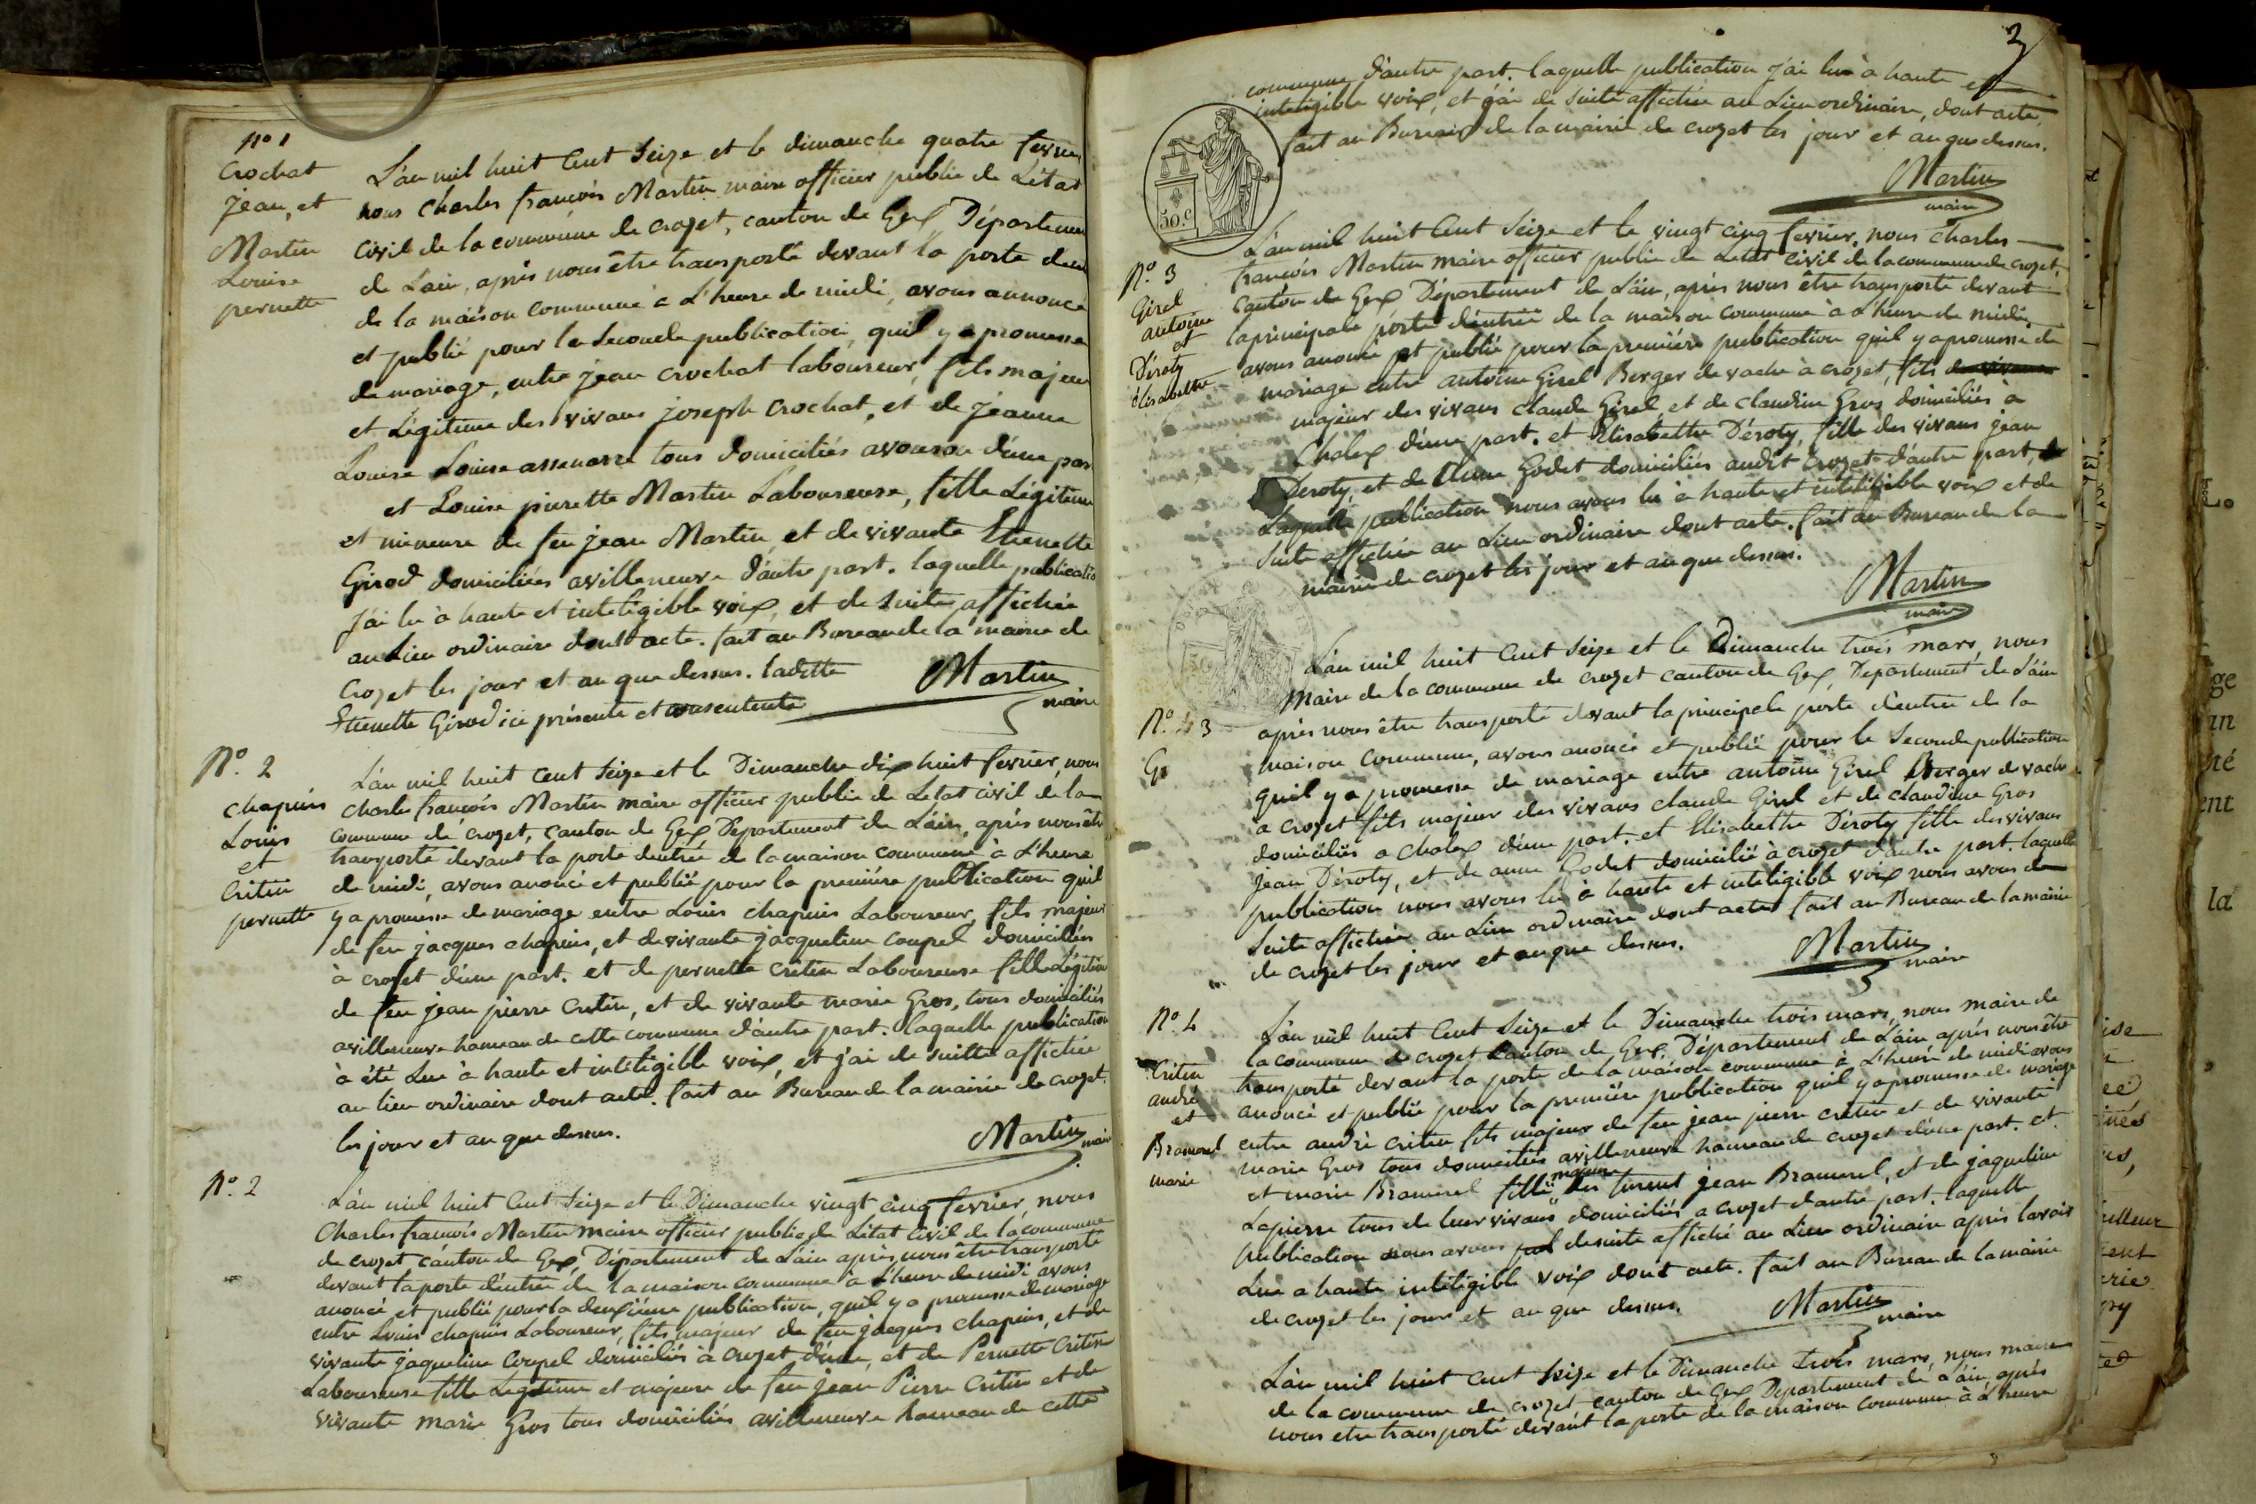 nº 1
Crochat
jean, et
Martin
Louise
pernette
L'an mil huit Cent Seize et le dimanche quatre fevrier
nous charles françois Martin maire officier public de L'état
Civil de la commune de crozet, canton de Gex Département
de L'ain, après nous être transporté devant la porte
de la maison commune à L'heure de midi, avons annoncé
et publié pour la Seconde publication, quil y a promesse
de mariage, entre jean crochat laboureur, fils majeur
et Légitime des vivans joseph crochat, et de jeanne
Louise tous domiciliés d'une part
et Louise pierette Martin Laboureuse, fille Légitime
et mineure de feu jean Martin et de vivante Etienette
Girod domiciliées avilleneuve d'autre part. laquelle publication
j'ai lu à haute et inteligible voix, et de suite affichée
au Lieu ordinaire dont acte. fait au Bureau de la mairie de
Crozet les jour et an que dessus. ladette
Etienette Girod ici présente et consentente
Martin
maire
Nº. 2
chapuis
Louis
et
Critin
pernette
L'an mil huit cent Seize et le Dimanche dix huit fevrier, nous
charles françois Martin maire officier public de Letat civil de la
commune de crozet, canton de Gex Département de L'ain, après nous être
transporté devant la porte dentrée de la maison commune à L'heure
de midi, avons anoncé et publié pour la première publication quil
y a promesse de mariage entre Louis chapuis Laboureur, fils majeur
de feu jacques chapuis, et de vivante jacqueline coupel domiciliés
à crozet d'une part. et de pernette critin Laboureuse fille Légitime
de feu jean pierre Critin, et de vivante marie Gros, tous domiciliés
avilleneuve hameau de cette commune d'autre part. laquelle publication
à été Lue à haute et inteligible voix, et j'ai de suitte affichée
au lieu ordinaire dont acte. fait au Bureau de la mairie de crozet.
les jour et an que dessus.
Martin maire
Nº. 2
L'an mil huit Cent Seize et le Dimanche vingt cinq fevrier, nous
Charles françois Martin maire officier public de L'état Civil de la commune
de crozet, canton de Gex, Département de L'ain après nous être transporté
devant la porte d'entrée de la maison commune à L'heure de midi avons
anoncé et publié pour la deuxième publication, quil y a promesse de mariage
entre Louis chapuis Laboureur, fils majeur de feu jacques chapuis, et de
vivante jaqueline Coupel domiciliés à Crozet d'une, et de Pernette Critin
Laboureuse fille Legitime et majeure de feu jean Pierre Critin et de
vivante marie Gros tous domiciliés avilleneuve hameau de cette
2
commune d'autre part. laquelle publication j'ai lue à haute et
inteligible voix, et j'ai de suite affichée au Lieu ordinaire, dont acte,
fait au Bureau de la mairie de crozet les jour et an que dessus.
Martin
maire
50. c
Nº. 3
Girel
antoine
et
Déroty
élisabette
L'an mil huit Cent Seize et le vingt cinq fevrier, nous charles
françois Martin maire officier public de Letat civil de la commune de crozet,
canton de Gex Département de L'ain, après nous être transporté devant
la principale porte d'entrée de la maison commune à L'heure de midi,
avons anoncé et publié pour la première publication quil y a promesse de
mariage entre antoine Girel Berger de vache à crozet, fils de vivans
majeur des vivans claude Girel, et de claudine Gros domiciliés à
Chalex d'une part. et Elisabethe Déroty, fille des vivans jean
Deroty, et de Anne Godet domiciliés audit Crozet d'autre part,
Laquelle publication nous avons lu à haute et inteligible voix et de
suite affichée au Lieu ordinaire dont acte. fait au Bureau de la
mairie de crozet les jour et an que dessus.
Martin
maire
Nº. 3
Gi
L'an mil huit Cent Seize et le Dimanche trois mars, nous
Maire de la commune de crozet canton de Gex, Département de L'ain
après nous être transporté devant la principale porte d'entrée de la
maison commune, avons anoncé et publié pour la Seconde publication
quil y a promesse de mariage entre antoine Girel Berger de vache
a crozet fils majeur des vivans claude Girel et de claudine Gros
domiciliés a chalex d'une part. et Elisabethe Déroty fille des vivans
Jean Déroty, et de anne Godet domicilié à crozet d'autre part. laquelle
publication nous avons lu à haute et inteligible voix nous avons de
Suite affichée au Lieu ordinaire dont acte fait au Bureau de la mairie
de crozet les jour et an que dessus.
Martin
maire
Nº. 4
Critin
andré
et
Bramerel
marie
L'an mil huit Cent Seize et le Dimanche trois mars, nous maire de
la commune de crozet Canton de Gex, Département de L'ain après nous être
transporté devant la porte de la maison commune à L'heure de midi avons
anoncé et publié pour la première publication quil y a promesse de mariage
entre andré critin fils majeur de feu jean pierre critin et de vivante
marie Gros tous domiciliés avilleneuve hameau de crozet d'une part. et
et marie Bramerel fille majeure jean Bramerel, et de jaqueline
Lapierre tous de leur vivans domiciliés a crozet d'autre part. laquelle
publication nous avons de suite affiché au Lieu ordinaire après lavoir
Lue a haute inteligible voix dont acte. fait au Bureau de la mairie
de crozet les jour et an que dessus.
Martin
maire
L'an mil huit Cent Seize et le Dimanche trois mars, nous maire
de la commune de crozet canton de Gex Département de L'ain, après
nous etre transporté devant la porte de la maison commune à L'heure